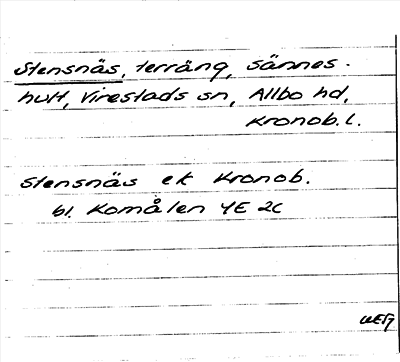 Stensnäs, terräng, Sännes-
hult, Virestads sn, Allbo hd,
Kronob. l.
Stensnäs ek Kronob.
bl. Komålen 4E 2c